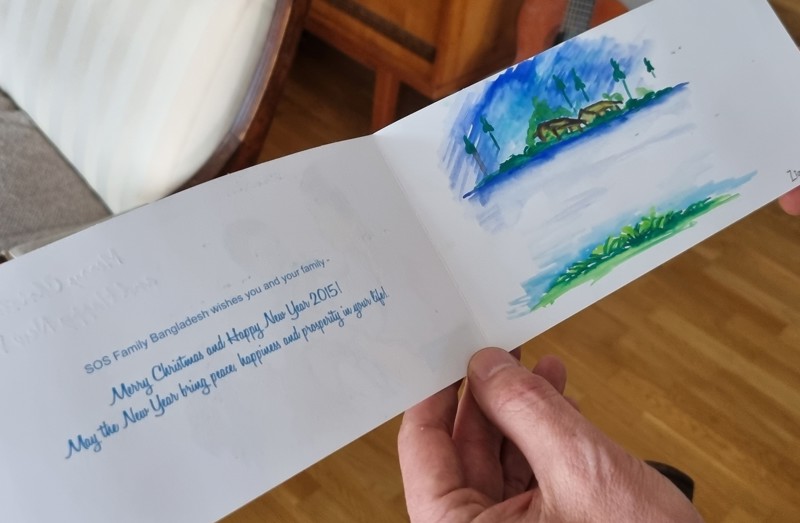 SOS Family Bangladesh wishes you and your family -
Merry Christmas and Happy New Year 2015!
May the New Year bring peace, happiness and prosperity in your life!